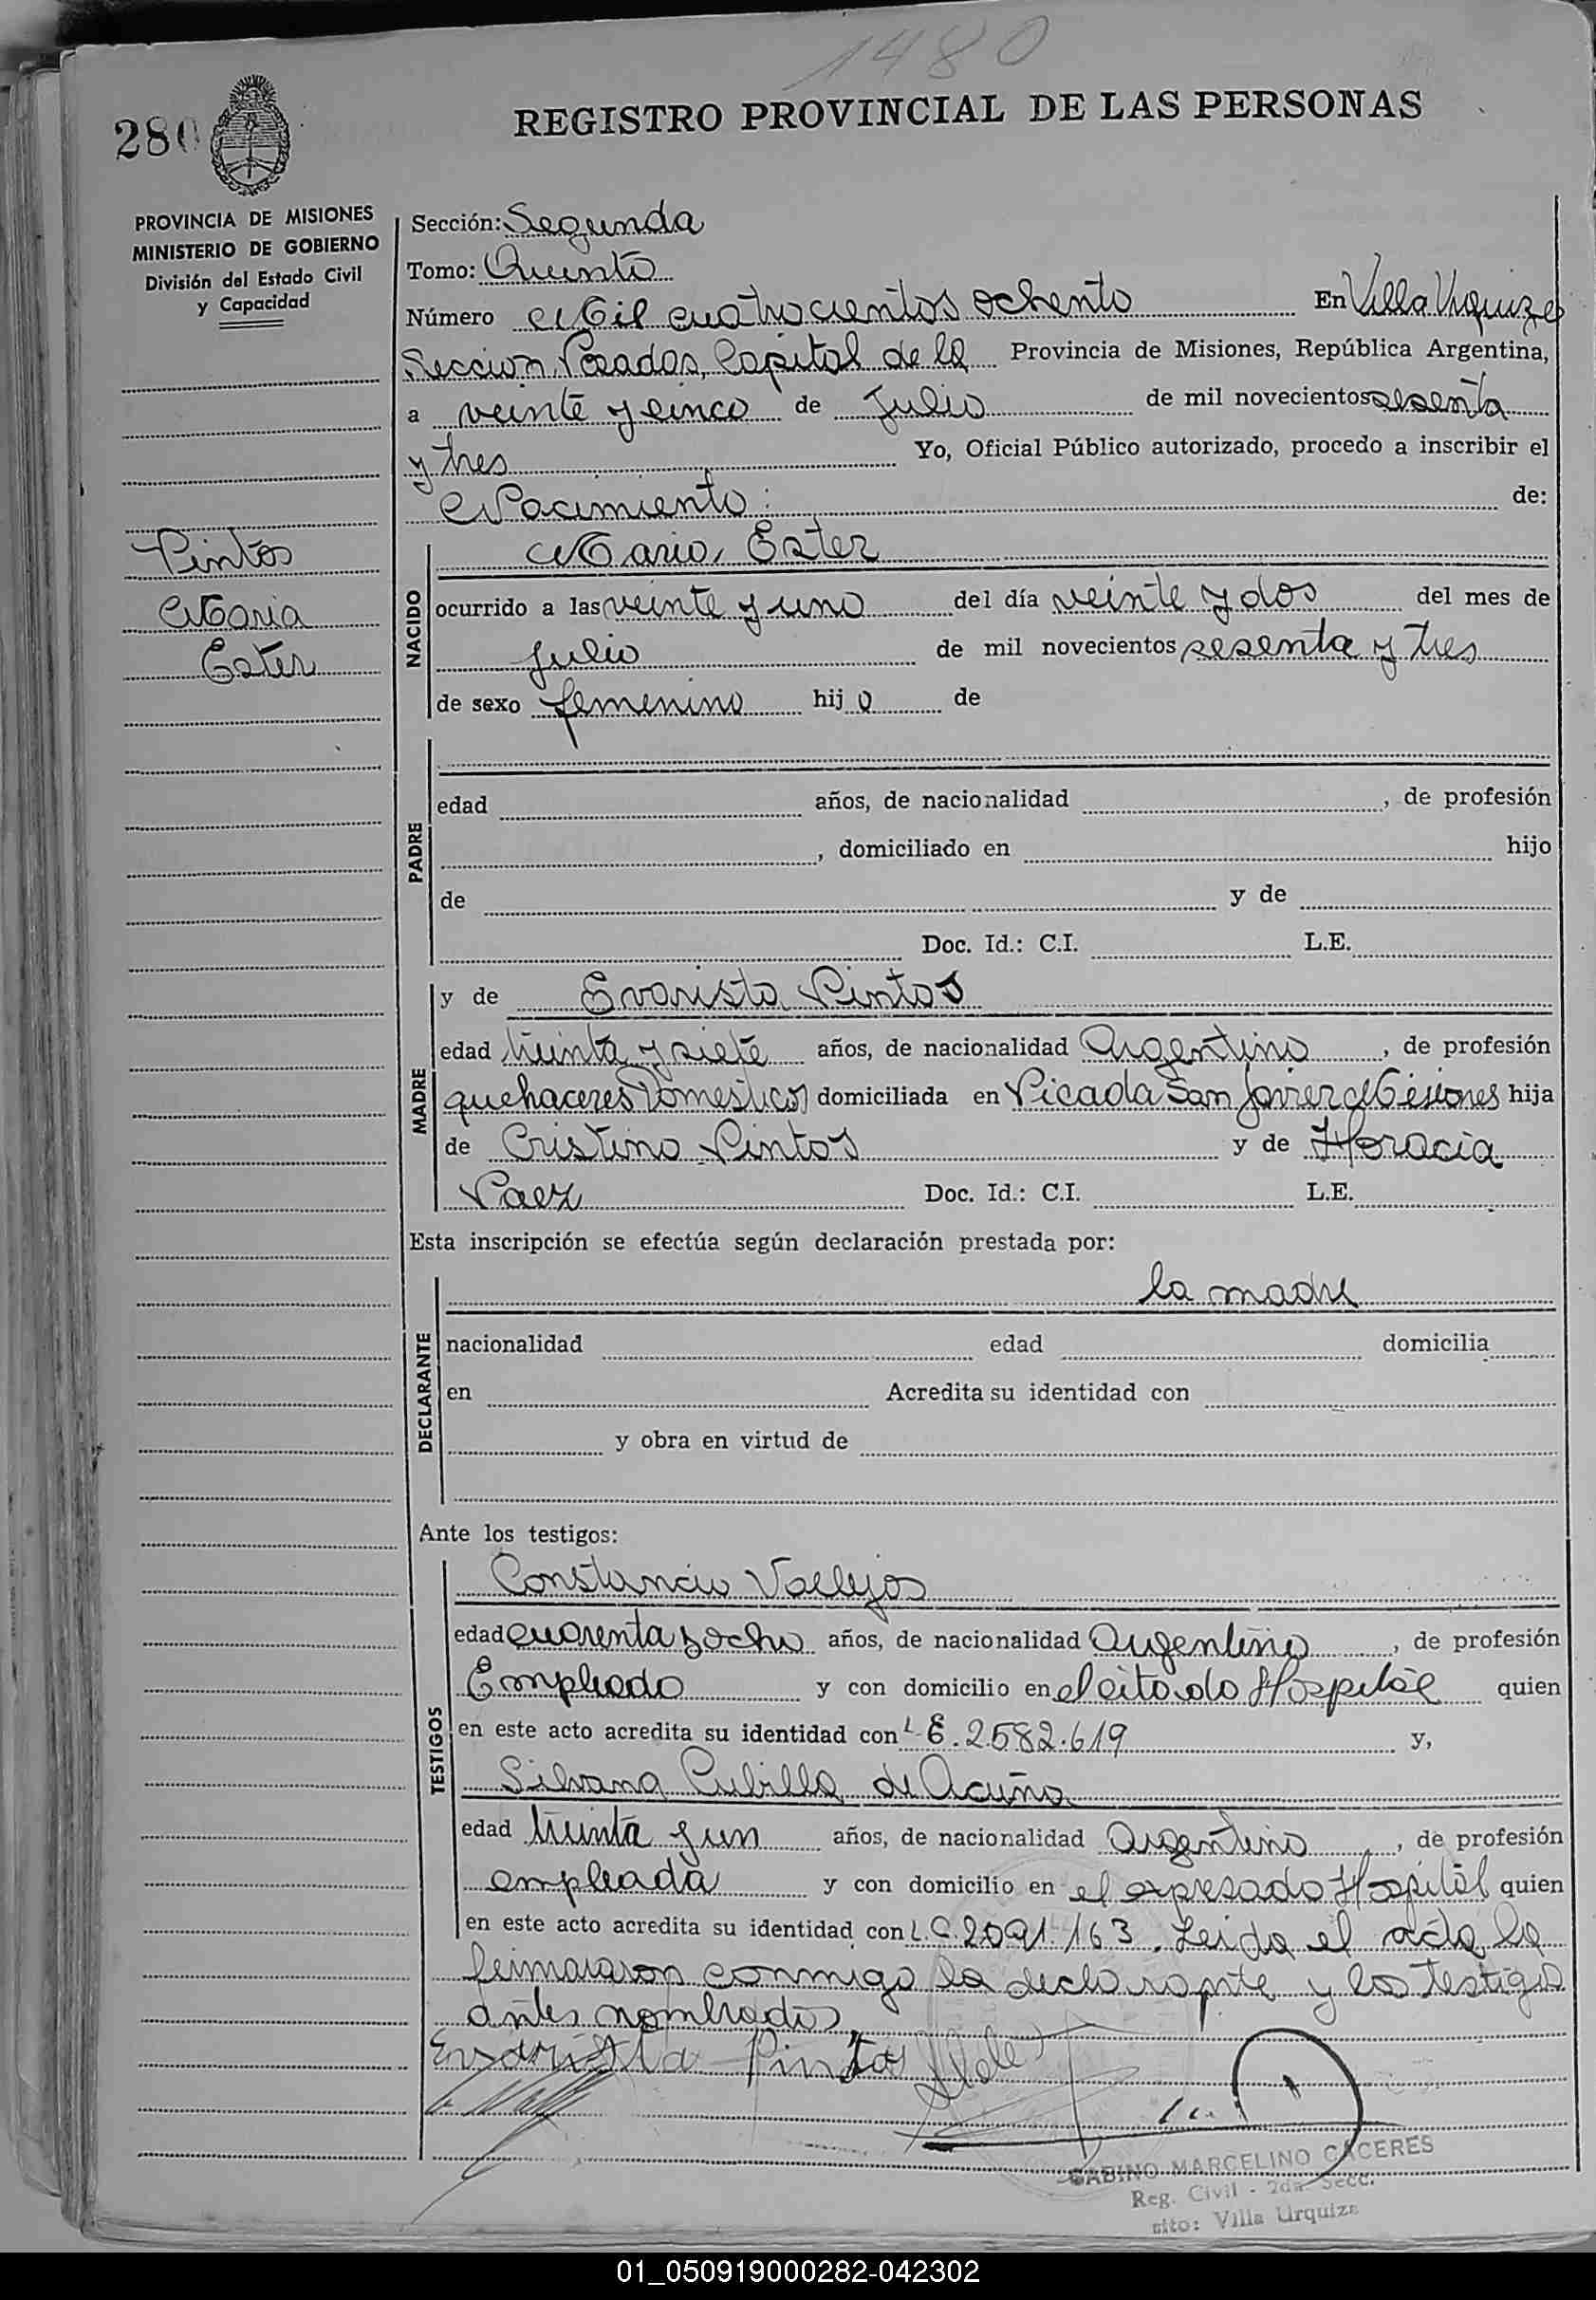 1480
280
REGISTRO PROVINCIAL DE LAS PERSONAS
PROVINCIA DE MISIONES
MINISTERIO DE GOBIERNO
División del Estado Civil
y Capacidad
Pintos
Maria
Ester
Sección: Segunda
Tomo: Quinto
Número Mil cuatrocientos ochenta En Villa Urquiza
Sección Posadas, Capital de la Provincia de Misiones, República Argentina,
a veinte y cinco de Julio de mil novecientos sesenta
y tres Yo, Oficial Público autorizado, procedo a inscribir el
Nacimiento: de:
NACIDO
Maria, Ester
ocurrido a las veinte y uno del día veinte y dos del mes de
Julio de mil novecientos sesenta y tres
de sexo femenino hija de
PADRE
edad años, de nacionalidad , de profesión
, domiciliado en hijo
de y de
Doc. Id.: C.I. L.E.
MADRE
y de Evarista Pintos
edad treinta y siete años, de nacionalidad Argentina, de profesión
quehaceres Domesticos domiciliada en Picada San Javier Misiones hija
de Cristino Pintos y de Horacia
Paez Doc. Id.: C.I. L.E.
Esta inscripción se efectúa según declaración prestada por:
DECLARANTE
la madre
nacionalidad edad domicilia
en Acredita su identidad con
y obra en virtud de
Ante los testigos:
TESTIGOS
Constancio Vallejos
edad cuarenta y ocho años, de nacionalidad Argentino, de profesión
Empleado y con domicilio en el citado Hospital quien
en este acto acredita su identidad con L.E. 2.582.619 y,
Silvana Cubilla de Acuña
edad treinta y un años, de nacionalidad Argentina, de profesión
empleada y con domicilio en el expresado Hospital quien
en este acto acredita su identidad con L.C. 2091.163. Leida el acta, la
firmaron conmigo la declarante y los testigos
antes nombrados,
Evarista Pintos
GABINO MARCELINO CACERES
Reg. Civil - 2da Secc.
sito: Villa Urquiza
01_050919000282-042302